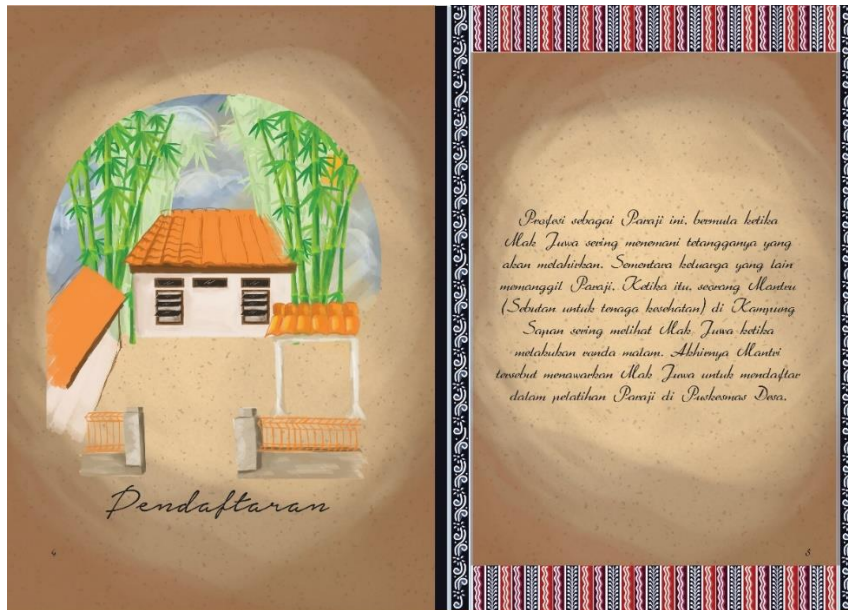 Pendaftaran
4
Profesi sebagai Paraji ini, bermula ketika
Mak Juwa sering menemani tetangganya yang
akan melahirkan. Sementara keluarga yang lain
memanggil Paraji. Ketika itu, seorang Mantri
(Sebutan untuk tenaga kesehatan) di Kampung
Sapan sering melihat Mak Juwa ketika
melakukan ronda malam. Akhirnya Mantri
tersebut menawarkan Mak Juwa untuk mendaftar
dalam pelatihan Paraji di Puskesmas Desa.